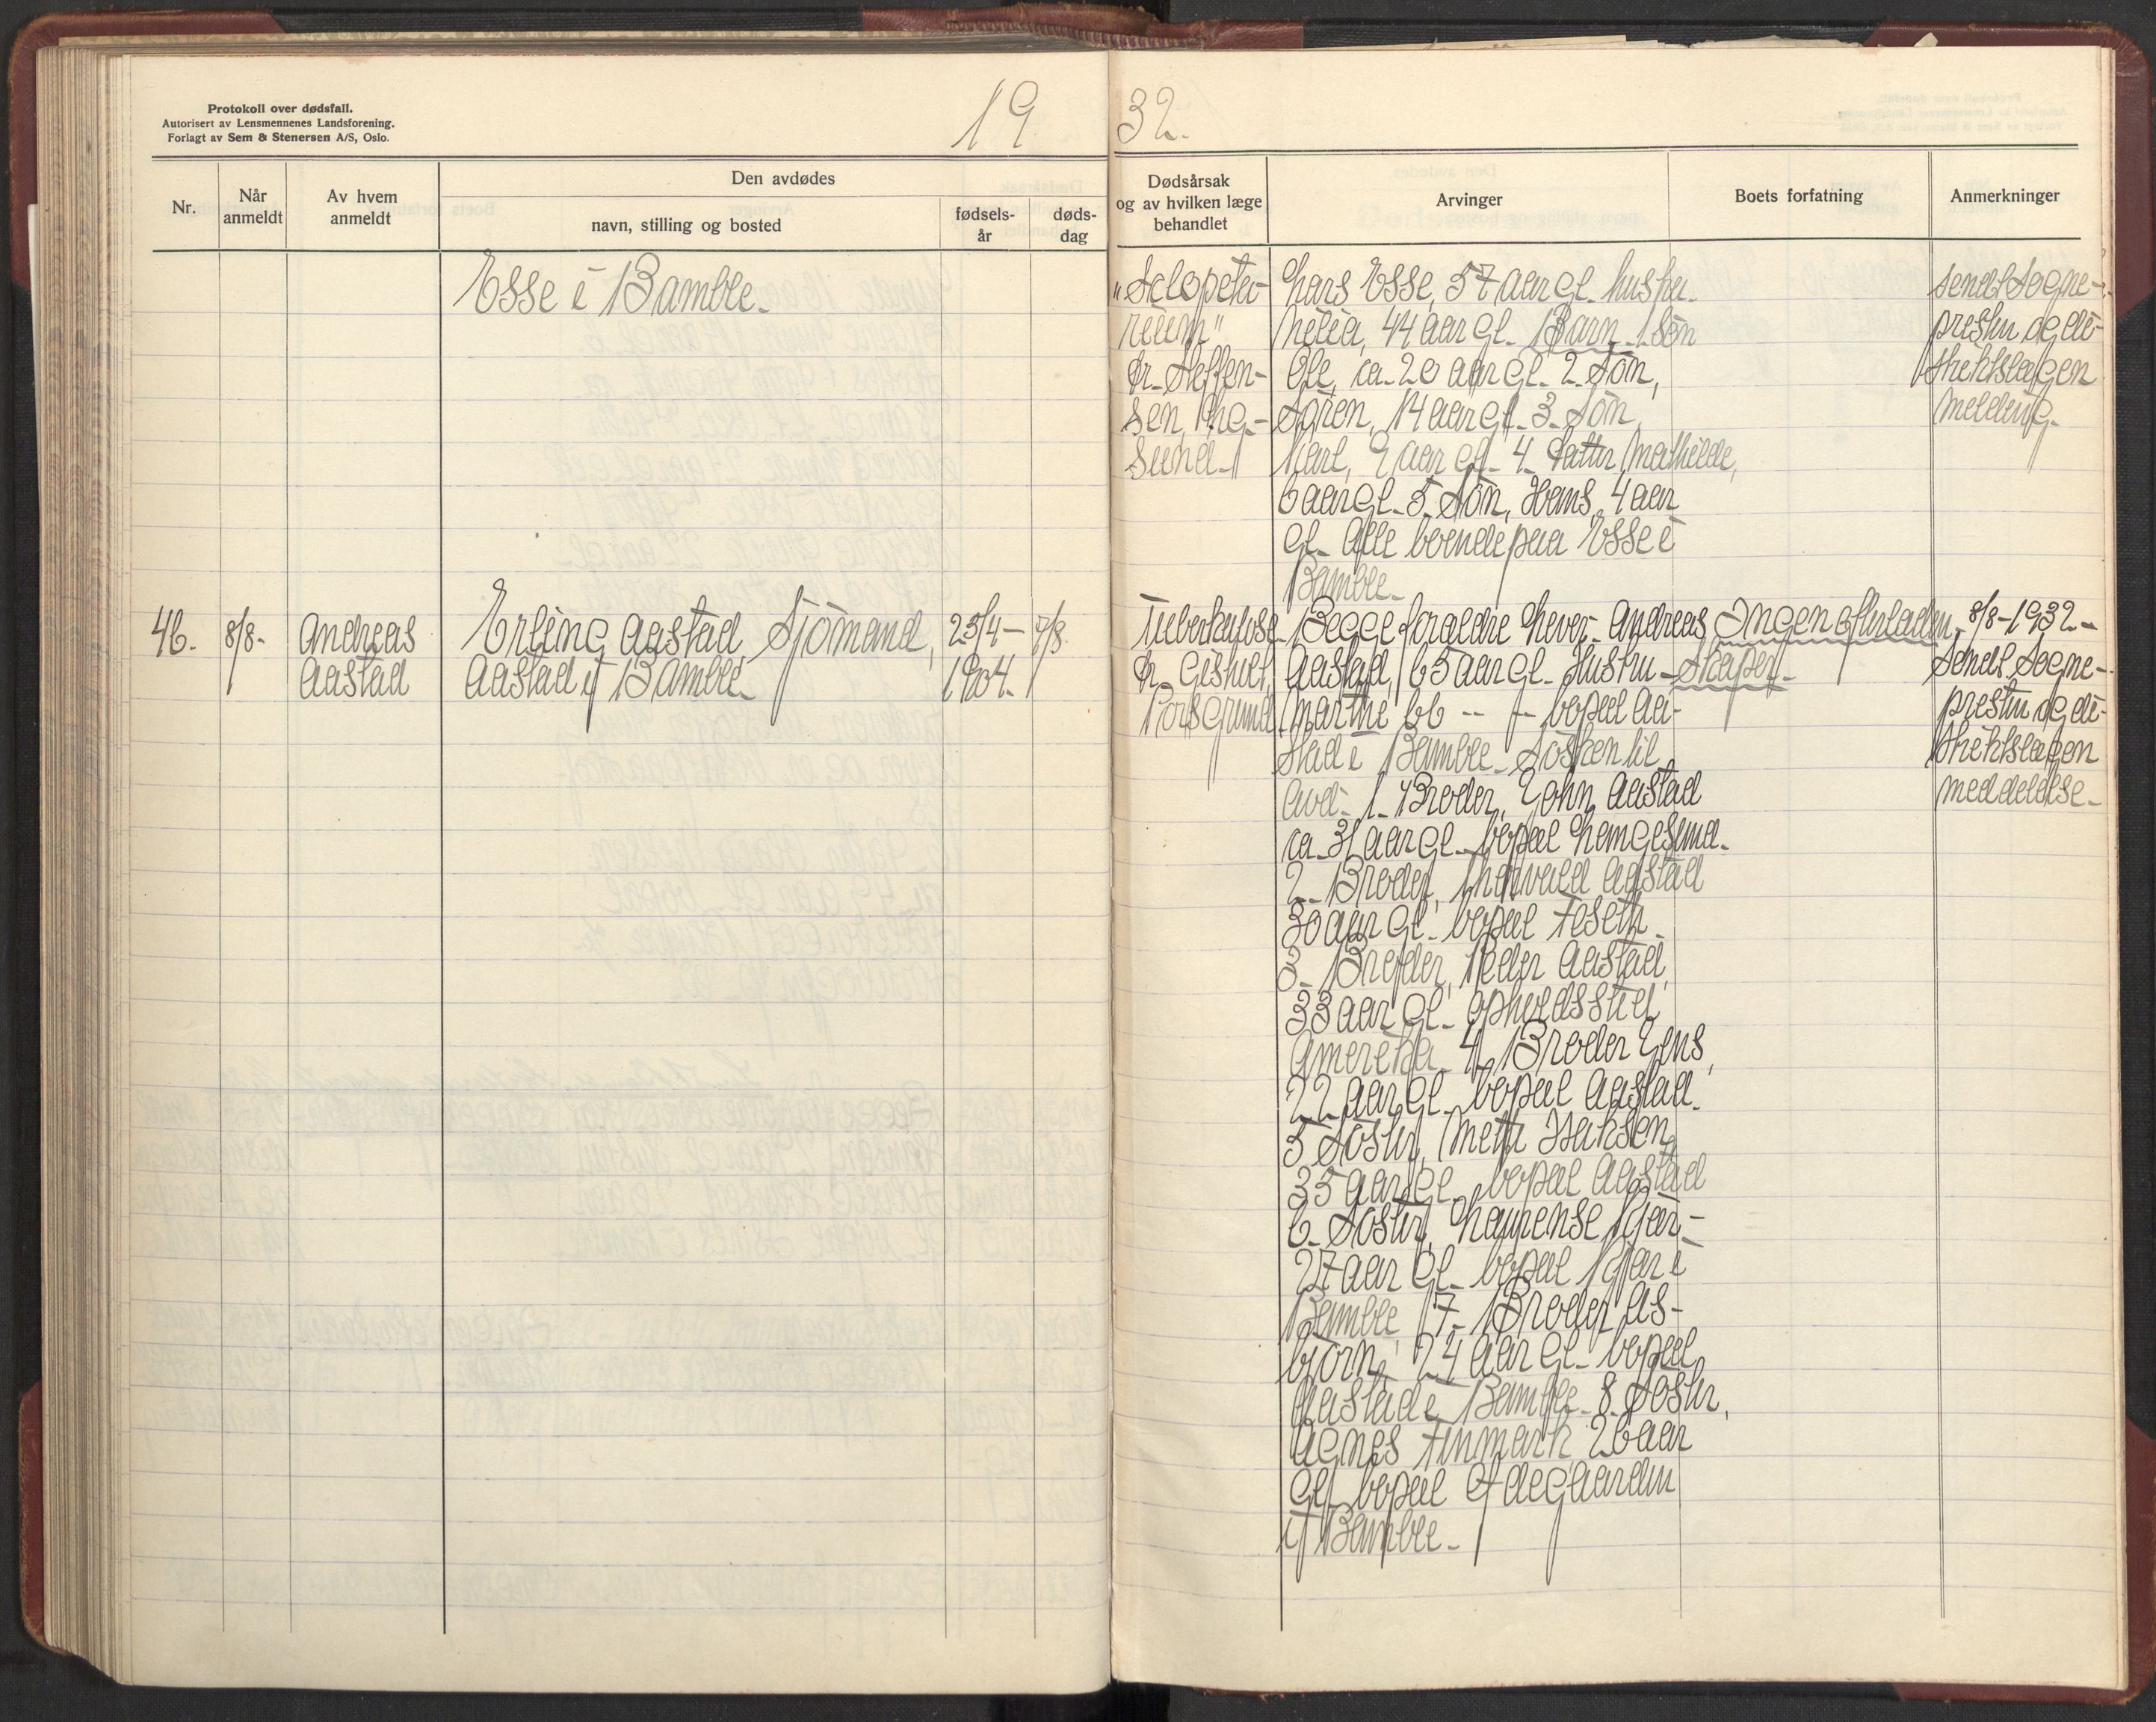 Protokoll over dødsfall.
Autorisert av Lensmennenes Landsforening.
Forlagt av Sem & Stenersen A/S, Oslo.
19
32.
Nr.
Når anmeldt
Av hvem anmeldt
Den avdødes
navn, stilling og bosted
fødsels-
år
døds-
dag
Dødsårsak
og av hvilken læge
behandlet
Arvinger
Boets forfatning
Anmerkninger
Esse i Bamble.
"Sclopeta-
rium"
Dr. Steffen-
sen,
sund.
Lars Esse, 57 aar gl. hustru
44 aar gl. Barn 1. Søn
Ole, ca. 20 aar gl. 2. Søn,
Søren, 14 aar gl. 3. Søn
Karl, 9 aar gl. 4. Datter Mathilde,
6 aar gl. 5. Søn, Hans, 4 aar
gl. Alle boende paa Esse i
Bamble.
Sendt Sogne-
presten og di-
striktslægen
melding.
46.
8/8.
Andreas
Aastad
Erling Aastad, Sjömand,
Aastad i Bamble.
23/4-
1904.
7/8
Tuberkulose
Dr. Gisholt,
Porsgrund
Begge foraldre lever. Andreas
Aastad, 65 aar gl. Hustru
Marthe 66 -- -- bopæl Aa-
stad i Bamble. Søsken til
Avd. 1. Broder, John Aastad
ca. 31 aar gl. bopæl Langesund.
2. Broder, Thorvald Aastad
30 aar gl. bopæl Foseth.
3. Broder, Peder Aastad,
33 aar gl. opholdssted
Amerika. 4. Broder Jens,
22 aar gl. bopæl Aastad.
5 Søster, Mette Isaksen,
35 aar gl. bopæl Aastad
6. Søster, Laurense Kjær-
27 aar gl. bopæl Kjær i
Bamble 7. Broder As-
bjørn, 24 aar gl. bopæl
Aastad i Bamble. 8. Søster,
Agnes Finmark 26 aar
gl. bopæl Ødegaarden
i Bamble.
Ingen efterladen-
skaper.
8/8-1932.
Sendt Sogne-
presten og di-
striktslægen
meddelelse.